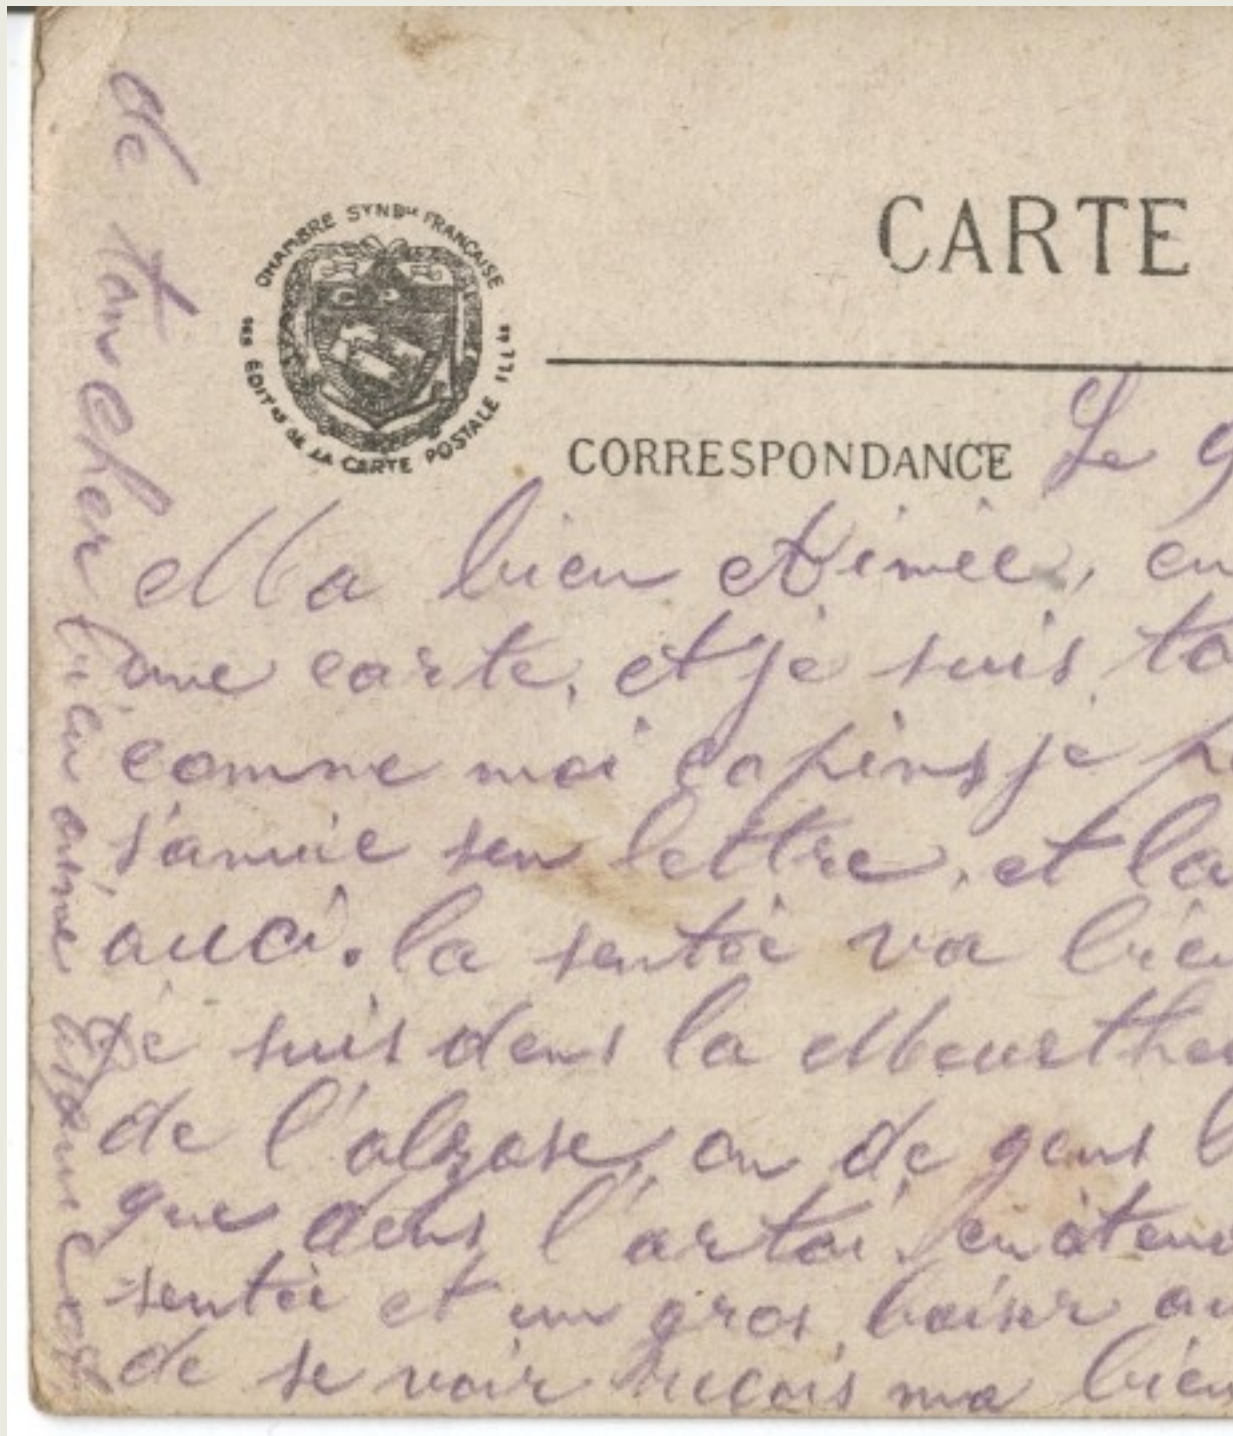 CHAMBRE SYND^le FRANÇAISE
DES ÉDIT^RS DE LA CARTE POSTALE ILL^ÉE
C P
CARTE
CORRESPONDANCE
Le 9
Ma bien Aimée, en
une carte, et je suis to
comme moi copins je p
s'anuie sen lettre, et la
auci. la sentéi va bien
je suis dens la Meurthe
de l'alzase, on de gens b
que dens l'artoi. en atend
sentéi et un gros baiser au
de se voir reçois ma bien
de ton cher bien aimé